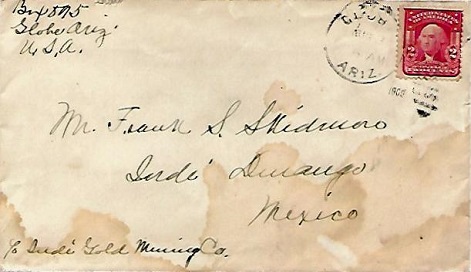 Box 595
Globe Ariz.
U.S.A.
GLOBE
ARIZ.
UNITED STATES
OF AMERICA
2 2
Mr. Frank S. Skidmore
Indé Durango
Mexico
c/o Indé Gold Mining Co.